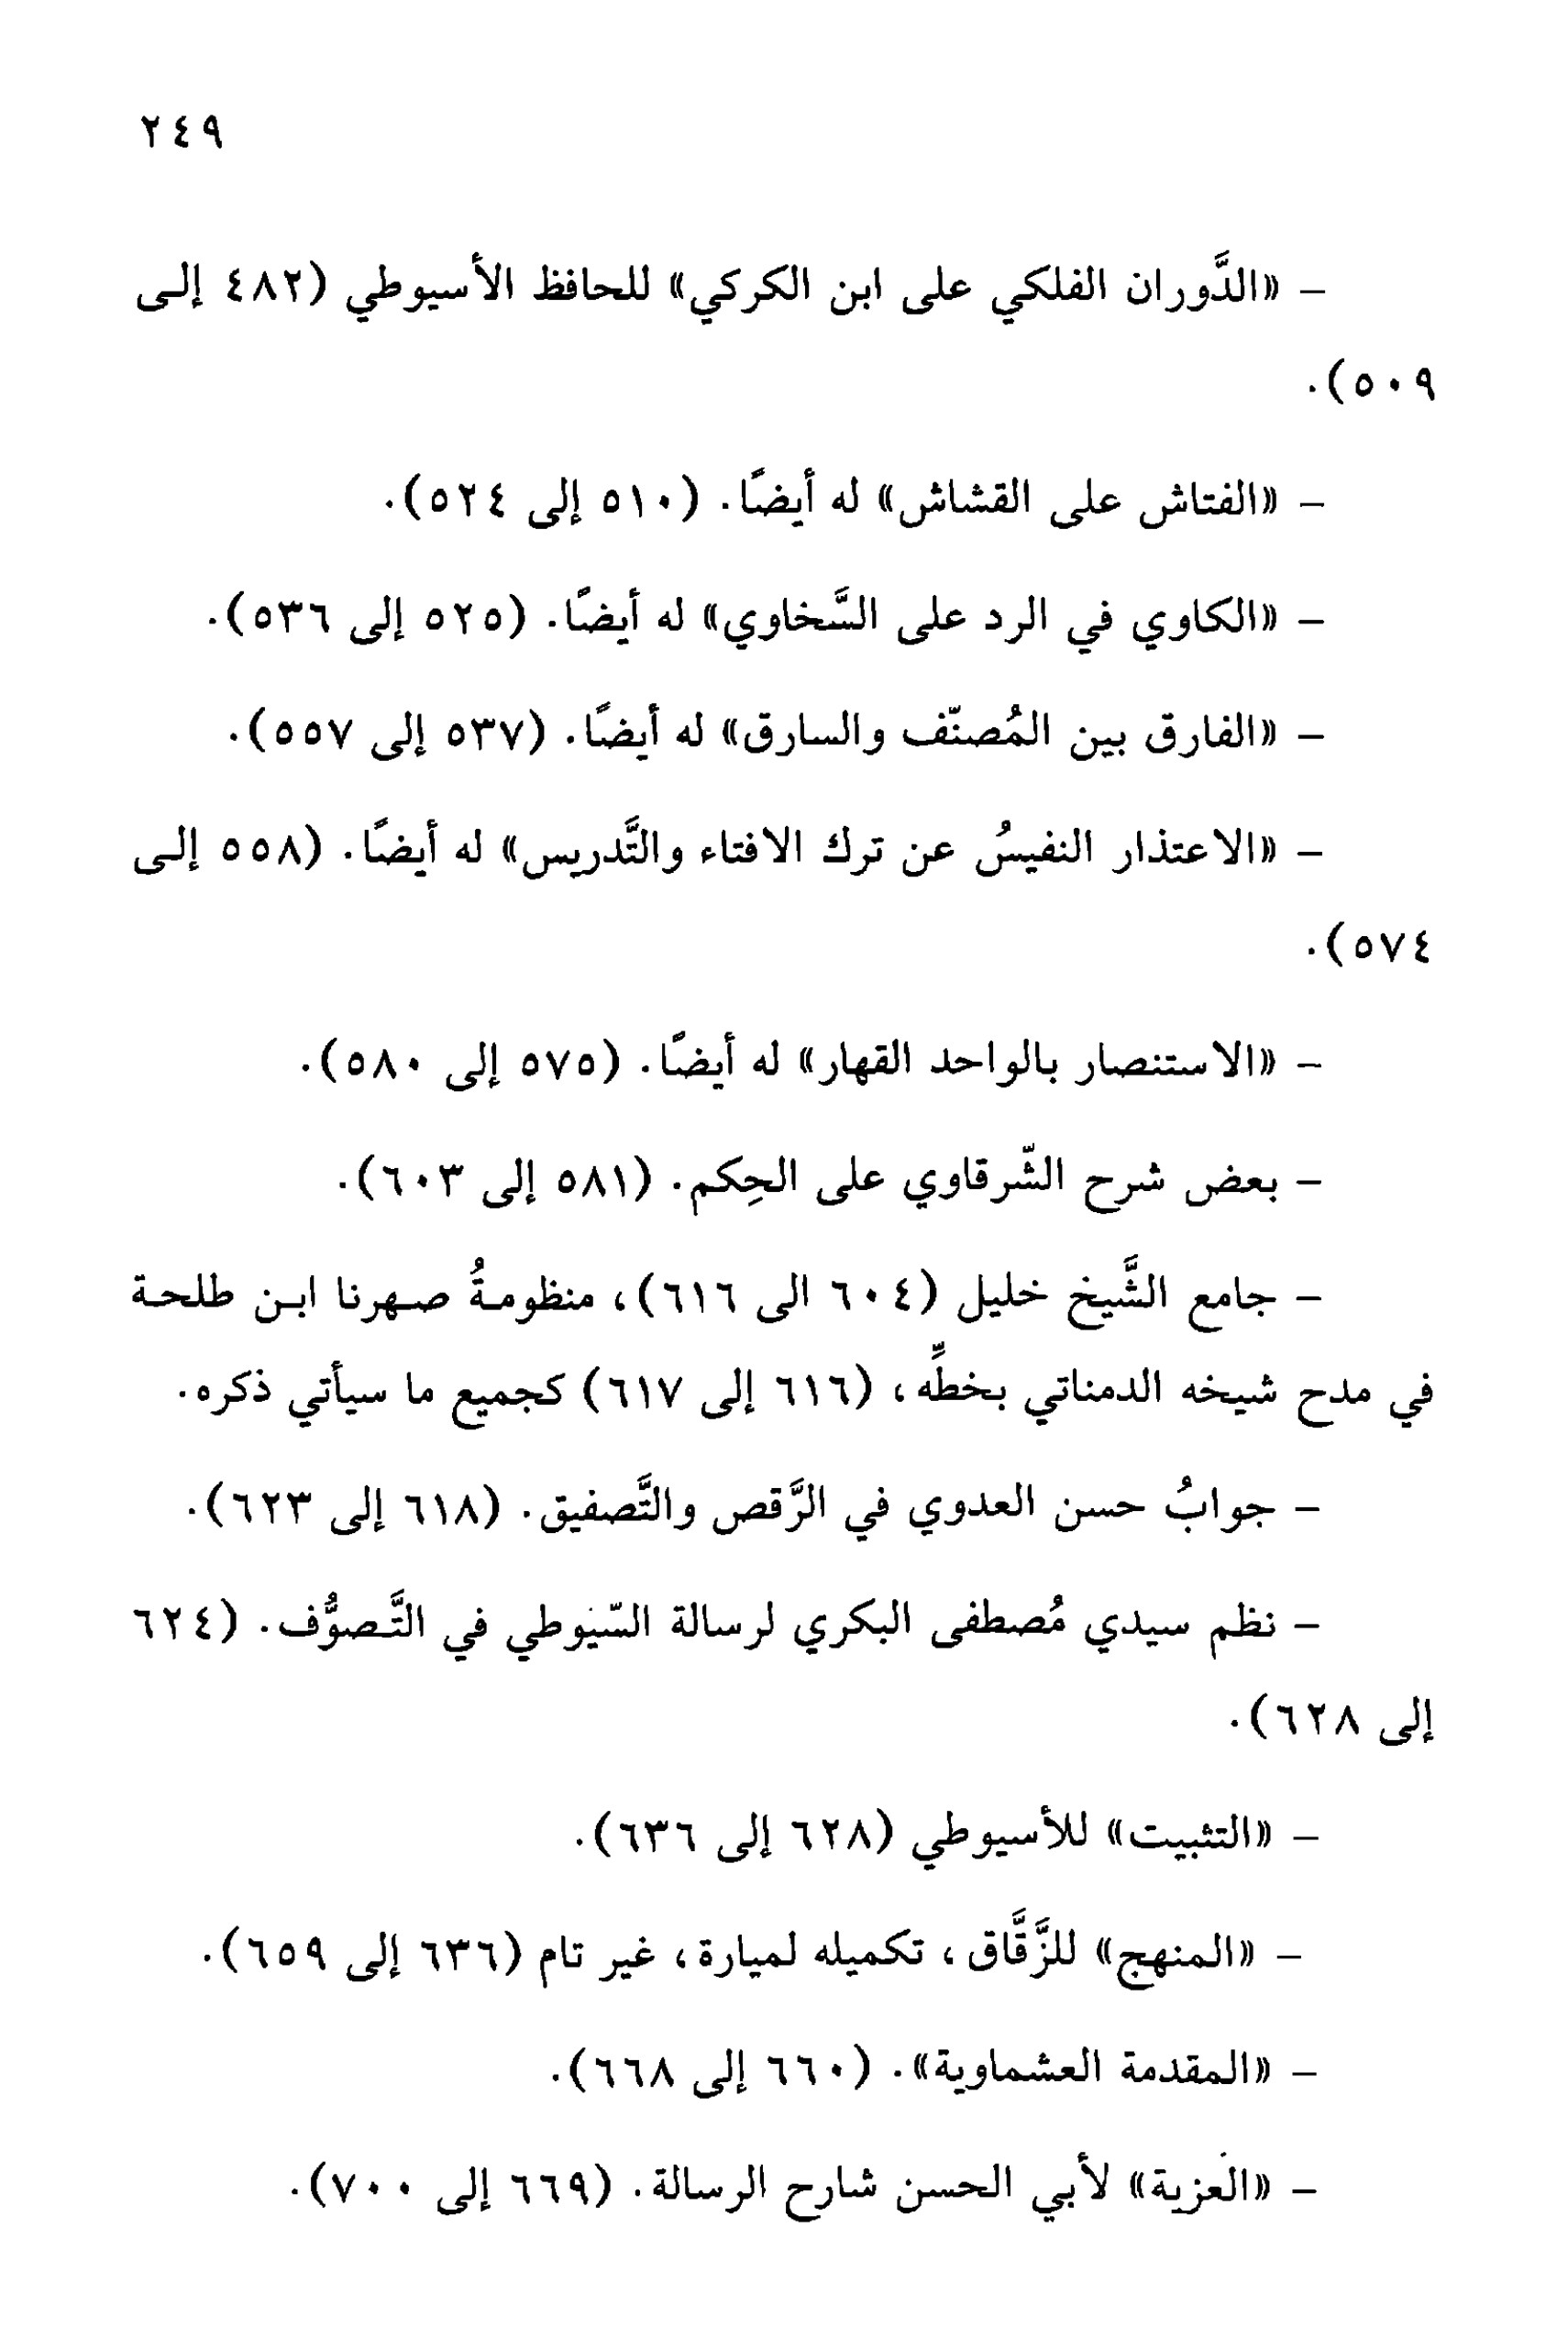 ٢٤٩
- «الدَّوران الفلكي على ابن الكركي» للحافظ الأسيوطي (٤٨٢ إلى
٥٠٩).
- «الفتاش على القشاش» له أيضًا. (٥١٠ إلى ٥٢٤).
- «الكاوي في الرد على السَّخاوي» له أيضًا. (٥٢٥ إلى ٥٣٦).
- «الفارق بين المُصنّف والسارق» له أيضًا. (٥٣٧ إلى ٥٥٧).
- «الاعتذار النفيسُ عن ترك الافتاء والتَّدريس» له أيضًا. (٥٥٨ إلى
٥٧٤).
- «الاستنصار بالواحد القهار» له أيضًا. (٥٧٥ إلى ٥٨٠).
- بعض شرح الشّرقاوي على الحِكم. (٥٨١ إلى ٦٠٣).
- جامع الشَّيخ خليل (٦٠٤ الى ٦١٦)، منظومةُ صهرنا ابن طلحة
في مدح شيخه الدمناتي بخطِّه، (٦١٦ إلى ٦١٧) كجميع ما سيأتي ذكره.
- جوابُ حسن العدوي في الرَّقص والتَّصفيق. (٦١٨ إلى ٦٢٣).
- نظم سيدي مُصطفى البكري لرسالة السّيوطي في التَّصوُّف. (٦٢٤
إلى ٦٢٨).
- «التثبيت» للأسيوطي (٦٢٨ إلى ٦٣٦).
- «المنهج» للزَّقَّاق، تكميله لميارة، غير تام (٦٣٦ إلى ٦٥٩).
- «المقدمة العشماوية». (٦٦٠ إلى ٦٦٨).
- «العزية» لأبي الحسن شارح الرسالة. (٦٦٩ إلى ٧٠٠).